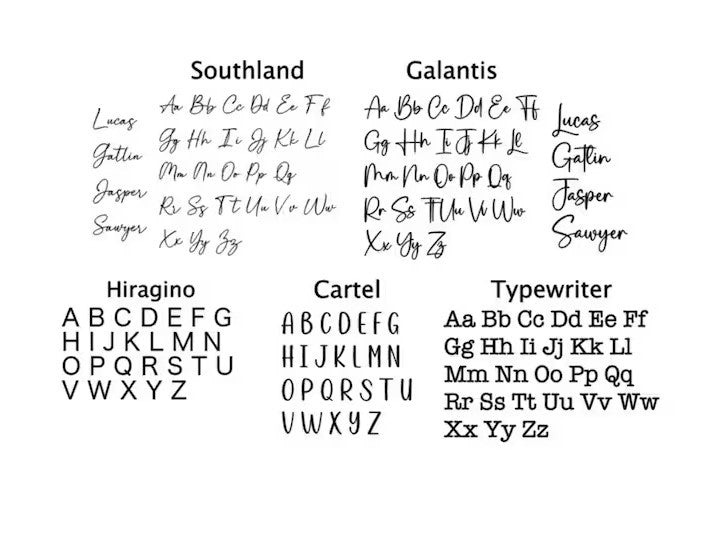 Southland
Aa Bb Cc Dd Ee Ff
Gg Hh Ii Jj Kk Ll
Mm Nn Oo Pp Qq
Rr Ss Tt Uu Vv Ww
Xx Yy Zz
Lucas
Gatlin
Jasper
Sawyer
Galantis
Aa Bb Cc Dd Ee Ff
Gg Hh Ii Jj Kk Ll
Mm Nn Oo Pp Qq
Rr Ss Tt Uu Vv Ww
Xx Yy Zz
Lucas
Gatlin
Jasper
Sawyer
Hiragino
A B C D E F G
H I J K L M N
O P Q R S T U
V W X Y Z
Cartel
A B C D E F G
H I J K L M N
O P Q R S T U
V W X Y Z
Typewriter
Aa Bb Cc Dd Ee Ff
Gg Hh Ii Jj Kk Ll
Mm Nn Oo Pp Qq
Rr Ss Tt Uu Vv Ww
Xx Yy Zz